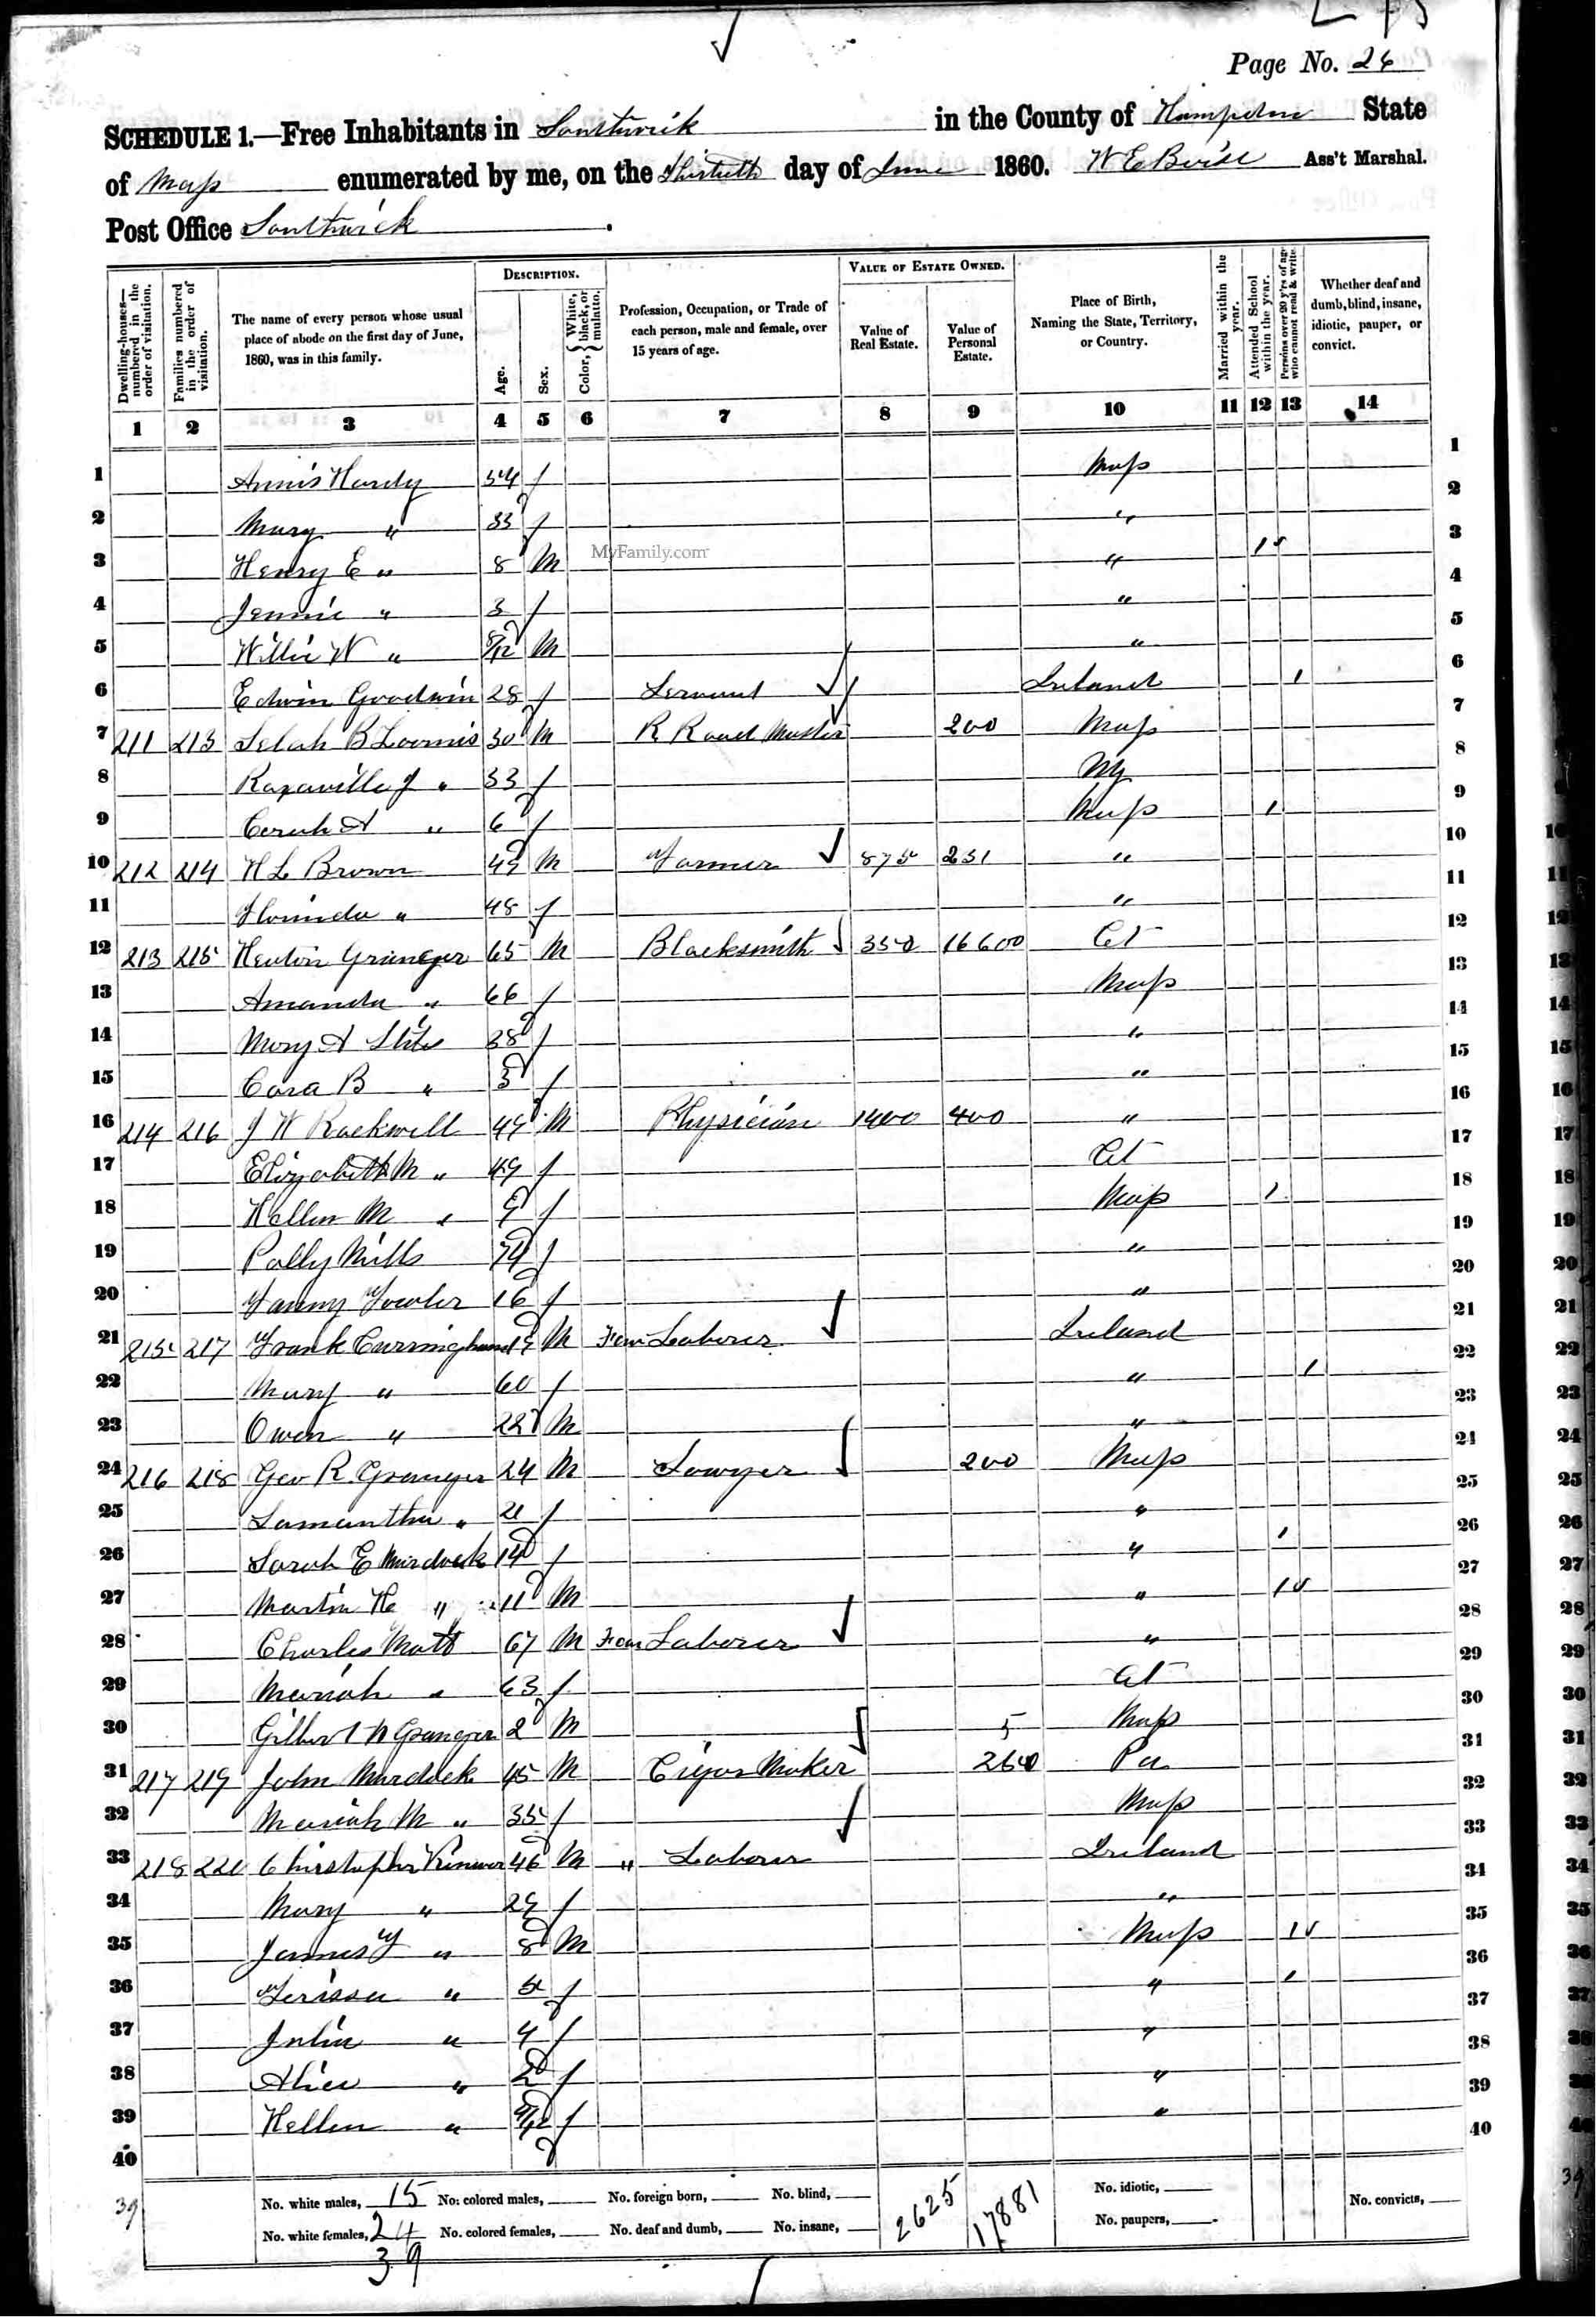 Page No. 26
SCHEDULE 1.—Free Inhabitants in Southwick in the County of Hampden State
of Mass enumerated by me, on the Thirtieth day of June 1860. W E Boise Ass't Marshal.
Post Office Southwick.
DESCRIPTION. VALUE OF ESTATE OWNED.
Dwelling-houses—numbered in the order of visitation. Families numbered in the order of visitation. The name of every person whose usual place of abode on the first day of June, 1860, was in this family. Age. Sex. Color, {White, black, or mulatto.} Profession, Occupation, or Trade of each person, male and female, over 15 years of age. Value of Real Estate. Value of Personal Estate. Place of Birth, Naming the State, Territory, or Country. Married within the year. Attended School within the year. Persons over 20 y'rs of age who cannot read & write. Whether deaf and dumb, blind, insane, idiotic, pauper, or convict.
1 2 3 4 5 6 7 8 9 10 11 12 13 14
1 Annis Hardy 54 f Mass 1
2 Mary " 33 f " 2
MyFamily.com
3 Henry E " 8 M " 1 3
4 Jennie " 3 f " 4
5 Willie W " 8/12 M " 5
6 Edwin Goodwin 28 f Servant Ireland 1 6
7 211 213 Selah B Loomis 30 M R Road Master 200 Mass 7
8 33 f NY 8
9 A " 6 f Mass 1 9
10 212 214 H L Brown 49 M Farmer 875 231 " 10
11 " 48 f " 11
12 213 215 Granger 65 M Blacksmith 350 16600 Ct 12
13 Amanda " 66 f Mass 13
14 Mary A Stiles 38 f " 14
15 Cora B " 3 f " 15
16 214 216 J W Rockwell 49 M Physician 1400 400 " 16
17 Elizabeth M " 49 f Ct 17
18 Hellen M " 9 f Mass 1 18
19 Polly Mills 74 f " 19
20 Fanny Fowler 16 f " 20
21 215 217 Frank Curringham M Farm Laborer Ireland 21
22 Mary " 60 f " 1 22
23 Owen " 22 M " 23
24 216 218 Geo R. Granger 24 M Lawyer 200 Mass 24
25 Samantha " 21 f " 25
26 Sarah E Murdock 14 f " 1 26
27 Martin H " 11 M " 1 27
28 Charles Mott 67 M Farm Laborer " 28
29 Mariah " 63 f Ct 29
30 Gilbert N Granger 2 M 5 Mass 30
31 217 219 John Murdock 45 M Cigar Maker 2640 Pa 31
32 Mariah M " 35 f Mass 32
33 218 220 Christopher 46 M " Laborer Ireland 33
34 Mary " 29 f " 34
35 James F " 8 M Mass 1 35
36 " 5 f " 1 36
37 Julia " 4 f " 37
38 Alice " 2 f " 38
39 Hellen " 9/12 f " 39
40 40
39 No. white males, 15 No. colored males, No. foreign born, No. blind, 2625 17881 No. idiotic, No. convicts,
No. white females, 24 No. colored females, No. deaf and dumb, No. insane, No. paupers,
39